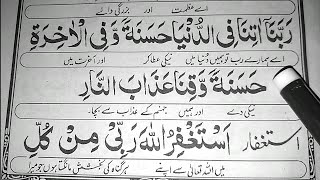 اے عظمت اور بزرگی والے
رَبَّنَا اٰتِنَا فِی الدُّنْیَا حَسَنَةً وَّ فِی الْاٰخِرَةِ
اے ہمارے رب تو ہمیں دنیا میں نیکی عطا کر اور آخرت میں
حَسَنَةً وَّقِنَا عَذَابَ النَّارِ
نیکی دے اور ہمیں جہنم کے عذاب سے بچا۔
استغفار اَسْتَغْفِرُ اللهَ رَبِّیْ مِنْ كُلِّ
میں اللہ تعالیٰ سے اپنے ہر گناہ کی بخشش مانگتا ہوں جو میرا